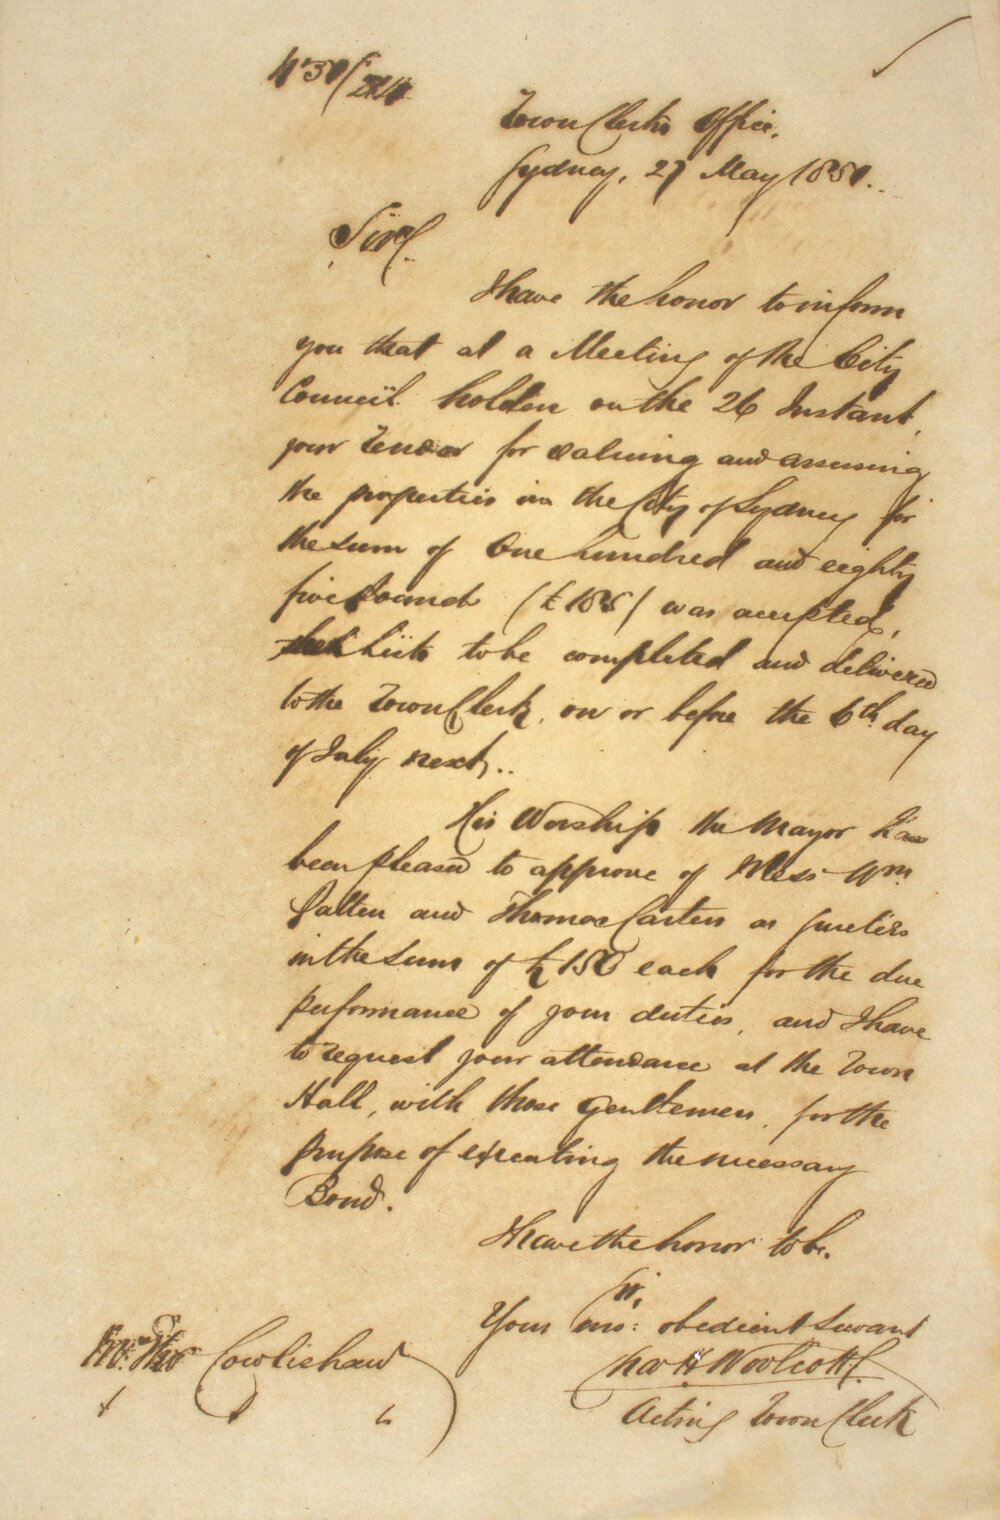 Town Clerk's Office,
Sydney, 27 May 1851.
Sir,
I have the honor to inform
you that at a Meeting of the City
Council holden on the 26 Instant,
your Tender for valuing and assessing
the properties in the City of Sydney for
the sum of One hundred and eighty
five Pounds (£185) was accepted,
the Lists to be completed and delivered
to the Town Clerk, on or before the 6th day
of July next.
His Worship the Mayor has
been pleased to approve of Mess Wm
Patten and Thomas as Sureties
in the sum of £150 each for the due
performance of your duties, and I have
to request your attendance at the Town
Hall, with those Gentlemen, for the
purpose of executing the necessary
Bond.
I have the honor to be,
Sir,
Your mo: obedient Servant
Chas H Woolcott
Acting Town Clerk
Mr. Thos Cowlishaw